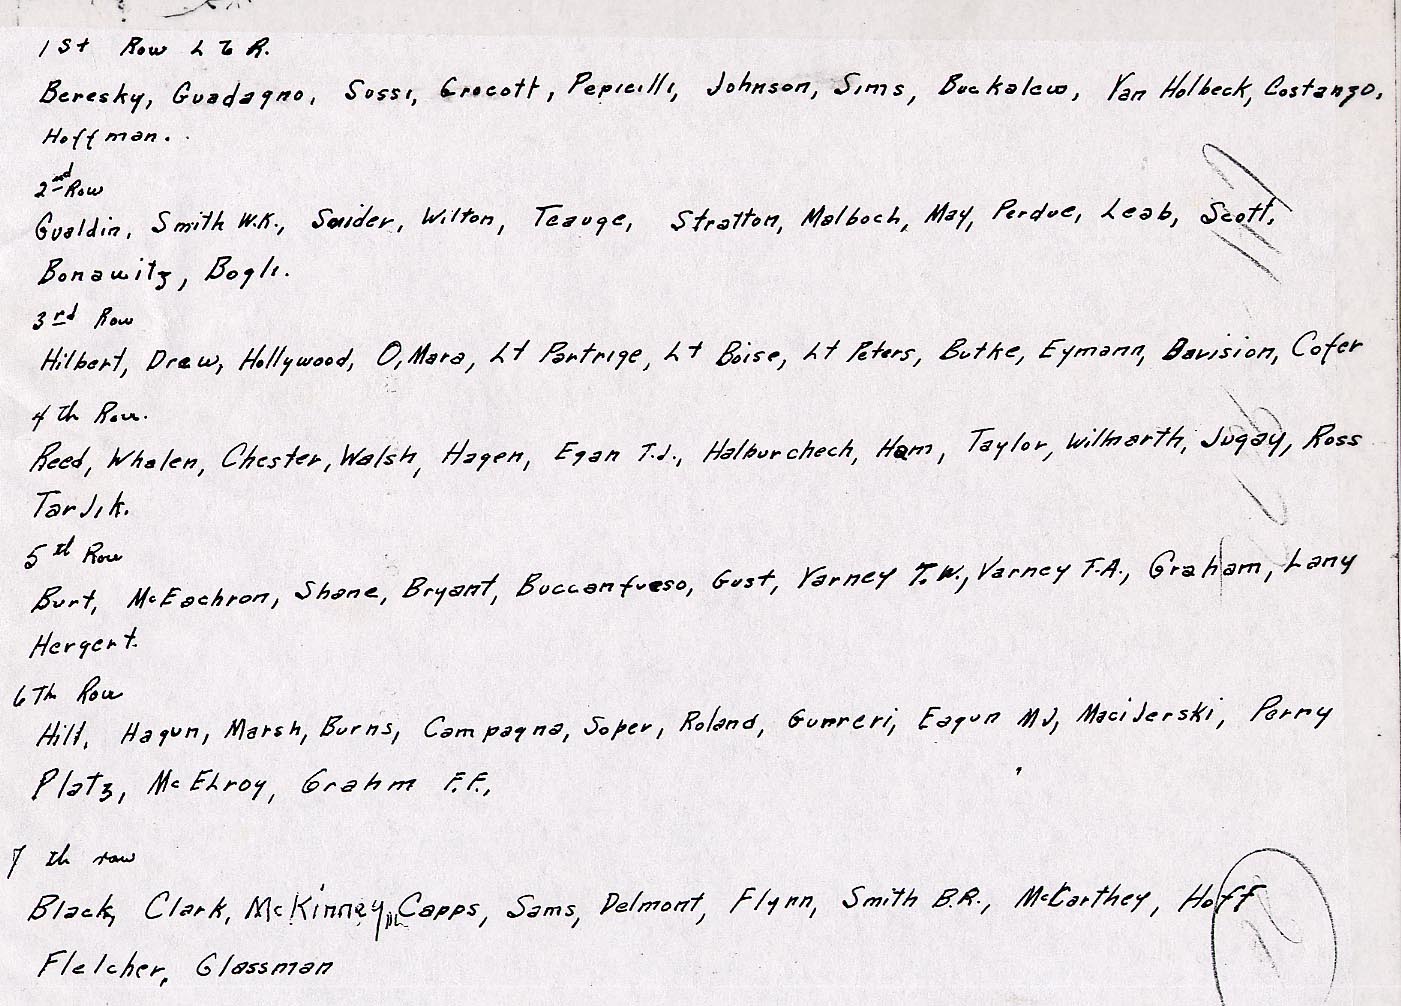 1st Row L to R.
Beresky, Guadagno, Sossi, Crocott, Pepicilli, Johnson, Sims, Buckalew, Van Holbeck, Costanzo,
Hoffman.
2nd Row
Gualdin, Smith W.K., Snider, Wilton, Teauge, Stratton, Malboch, May, Perdue, Leab, Scott,
Bonawitz, Bogli.
3rd Row
Hilbert, Drew, Hollywood, O,Mara, Lt Partrige, Lt Boise, Lt Peters, Butke, Eymann, Davision, Cofer
4th Row.
Reed, Whalen, Chester, Walsh, Hagen, Egan T.J., Halburchech, Ham, Taylor, Wilmarth, Jugay, Ross
TarJik.
5th Row
Burt, McEachron, Shane, Bryant, Buccanfueso, Gust, Varney T.W., Varney T.A., Graham, Lany
Hergert.
6Th Row
Hill, Hagun, Marsh, Burns, Campagna, Soper, Roland, Gunreri, Eagun MJ, MaciJerski, Perry
Platz, McElroy, Grahm F.F.,
7th row
Black, Clark, McKinney, Capps, Sams, Delmont, Flynn, Smith B.R., McCarthey, Hoff
Flelcher, Glassman